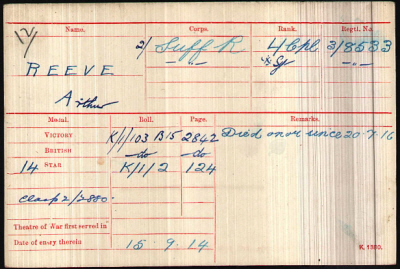 Name. Corps. Rank. Regtl. No.
2/ Suff R 4/Cpl 3/8533
REEVE -"- Sjt -"-
Arthur
Medal. Roll. Page. Remarks.
VICTORY K/1/103 B15 2842 Died on or since 20-7-16
BRITISH -do- -do-
14 STAR K/1/2 124
Clasp 2/2880.
Theatre of War first served in
Date of entry therein 15.9.14 K. 1380.